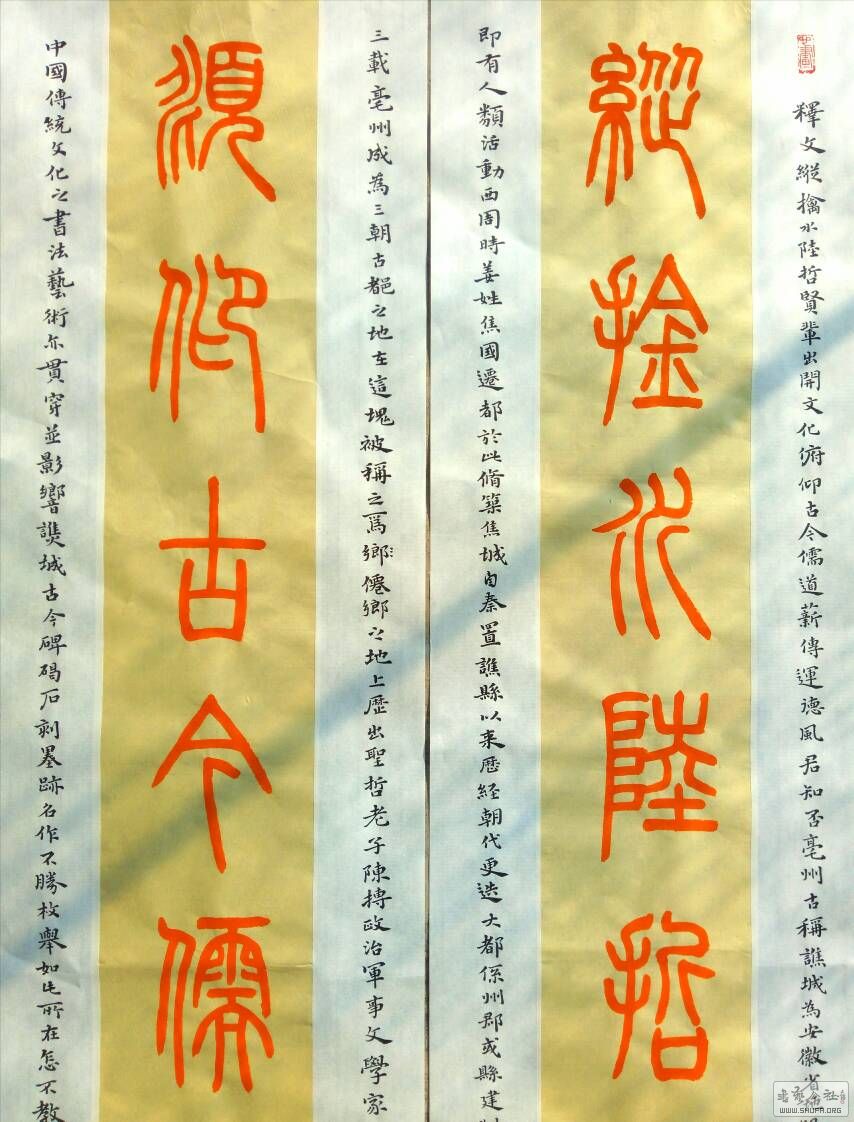 釋文縱擒水陸哲賢輩出開文化俯仰古今儒道薪傳運德風君知否亳州古稱譙城為安徽省
縱擒水陸哲
即有人類活動西周時姜姓焦國遷都於此脩築焦城自秦置譙縣以来歷経朝代更迭大都係州郡或縣建
三載亳州成為三朝古都之地在這塊被稱之為鄉僊鄉之地上歷出聖哲老子陳摶政治軍事文學家
頫仰古今儒
中國傳統文化之書法藝術亦貫穿並影響譙城古今碑碣石刻墨跡名作不勝枚舉如此所在怎不教
WWW.SHUFA.ORG